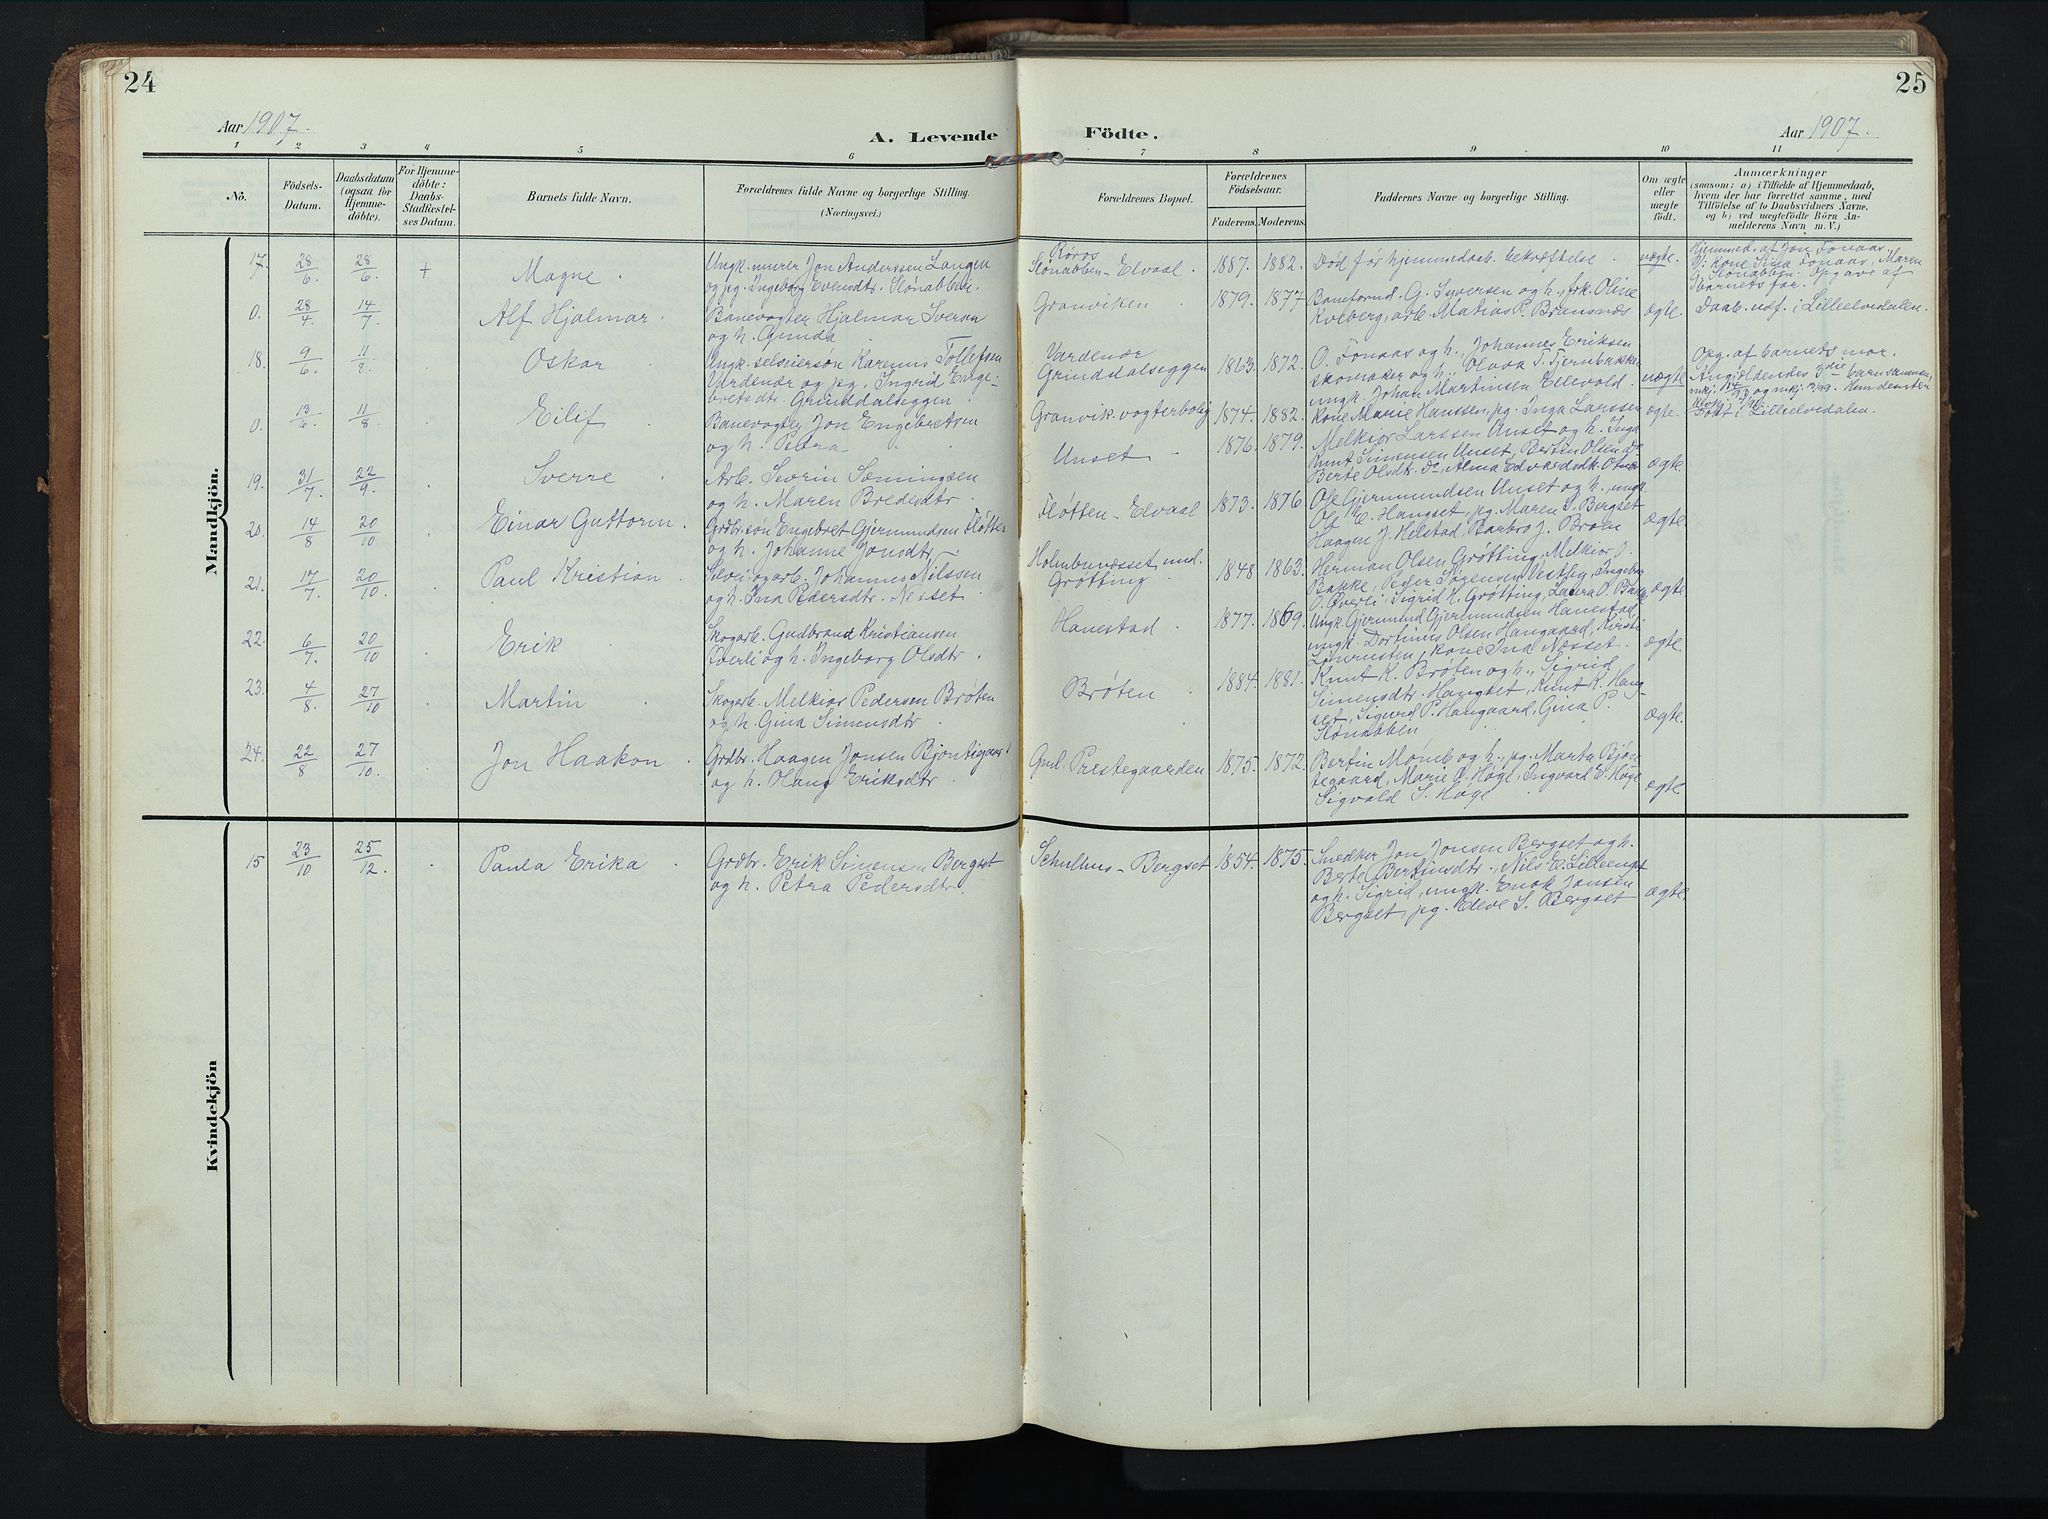 24
25
Aar 1907.
A. Levende Födte.
Aar 1907.
1 2 3 4 5 6 7 8 9 10 11
No.
Födsels-
Datum.
Daabsdatum
(ogsaa for
Hjemme-
döbte).
For Hjemme-
döbte:
Daabs-
Stadfæstel-
ses Datum.
Barnets fulde Navn.
Forældrenes fulde Navne og borgerlige Stilling.
(Næringsvei.)
Forældrenes Bopæl.
Forældrenes
Födselsaar.
Faderens. Moderens.
Faddernes Navne og borgerlige Stilling.
Om ægte
eller
uægte
födt.
Anmærkninger
(saasom: a) i Tilfælde af Hjemmedaab,
hvem der har forrettet samme, med
Tilföielse af to Daabsvidners Navne,
og b) ved uægtefödte Börn An-
melderens Navn m. V.)
Mandkjön.
17. 28/6. 28/6. +
Magne.
Ungk. murer Jon Anderssen Langen
og pg. Ingeborg Evensdtr. Stønabben.
Røros
Stønabben - Elvaal.
1887. 1882.
Død før hjemmedaab. bekræftelse.
uægte.
Hjemmed. af Jon Fonaas.
V: kone Sina Fonaas, Maren
Stønabben. Opgave af
barnets far.
0. 28/4. 14/7.
Alf Hjalmar.
Banevogter Hjalmar Iversen
og h. Gunda
Granviken
1879. 1877
Baneformd. G. Syversen og h., frk. Oline
Kolberg, arb. Matias P. Bransnæs
ægte.
Daab. udf. i Lilleelvedalen.
18. 9/6. 11/8.
Oskar
Ungk. selveiersøn Karenus Tollefsen
Vardenær og pg. Ingrid Enge-
bretsdtr. Grinddalseggen.
Vardenær
Grinddalseggen
1863. 1872.
O. Fonaas og h., Johannes Eriksen
skomaker og h., Olava T. Tjernbakken
ungk. Johan Martinsen Ellevold.
uægte
Opg. af barnets mor.
Angjældendes 3die barn sammen,
0. 13/6. 11/8.
Eilif
Banevogter Jon Engebretsen
og h. Petra
Granvik-vogterbolig
1874. 1882.
Kone Marie Hanssen, pg. Inga Larssen
ægte.
Døbt i Lilleelvedalen.
19. 31/7. 22/9.
Sverre
Arb. Sevrin Sæmingsen
og h. Maren Bredesdtr.
Unset
1876. 1879.
Melkior Larssen Unset og h. Inga
Knut Simensen Unset, Bertin Olsen Do
Berte Olsdtr. Do, Alma Edvardsdtr. Otnes
ægte
20. 14/8 20/10
Einar Guttorm.
Grdbr.søn Engebret Gjermundsen Fløtten
og h. Johanne Jonsdtr.
Fløtten - Elvaal
1873. 1876
Ole Gjermundsen Unset og h., ungk.
Ole E. Hangset, pg. Maren S. Bergset
Haagen J. Helstad, Barbro J. Broen
ægte.
21. 17/7. 20/10.
Paul Kristian.
Selvei. og arb. Johannes Nilssen
og h. Ina Pedersdtr. Nesset.
Holmbunesset, und.
Grøtting
1848 1863.
Herman Olsen Grøtting, Melkior J.
Bakke, Peder Sørensen Vestby, Ingebor
O. Øverli, Sigrid H. Grøtting, Laura O. Bakke
ægte
22. 6/7. 20/10
Erik
Skogarb. Gudbrand Kristiansen
Øverli og h. Ingeborg Olsdtr.
Hanestad.
1877. 1869.
Ungk. Gjermund Gjermundsen Hanestad,
ungk. Dorfinus Olsen Haugaard, Kirsti
Lønrusten, kone Ina Næsset.
ægte.
23. 4/8. 27/10
Martin
Skogarb. Melkior Pedersen Brøten
og h. Gina Simensdtr.
Brøten
1884. 1881.
Knut K. Brøten og h., Sigrid
Simensdtr. Hangset, Knut K. Hang-
set, Sigurd P. Haugaard, Gina P.
Stønabben
ægte.
24. 22/8 27/10.
Jon Haakon.
Grdbr. Haagen Jonsen Bjøntegaard
og h. Olang Eriksdtr.
Gml. Prestegaarden
1875. 1872.
Bertin Mømb og h., pg. Marta Bjøn-
tegaard, Marie O. Høge, Ingvard E. Høge
Sigvald S. Høge
ægte.
Kvindekjön
15 23/10 25/12.
Paula Erika
Grdbr. Erik Simensen Bergset
og h. Petra Pedersdtr.
Schulhus - Bergset
1854. 1875.
Snedker Jon Jonsen Bergset og h.
Berte Bertinsdtr., Nils E. Lilleengt
og h. Sigrid, ungk. Enok Jonsen
Bergset, pg. Eleve S. Bergset
ægte.